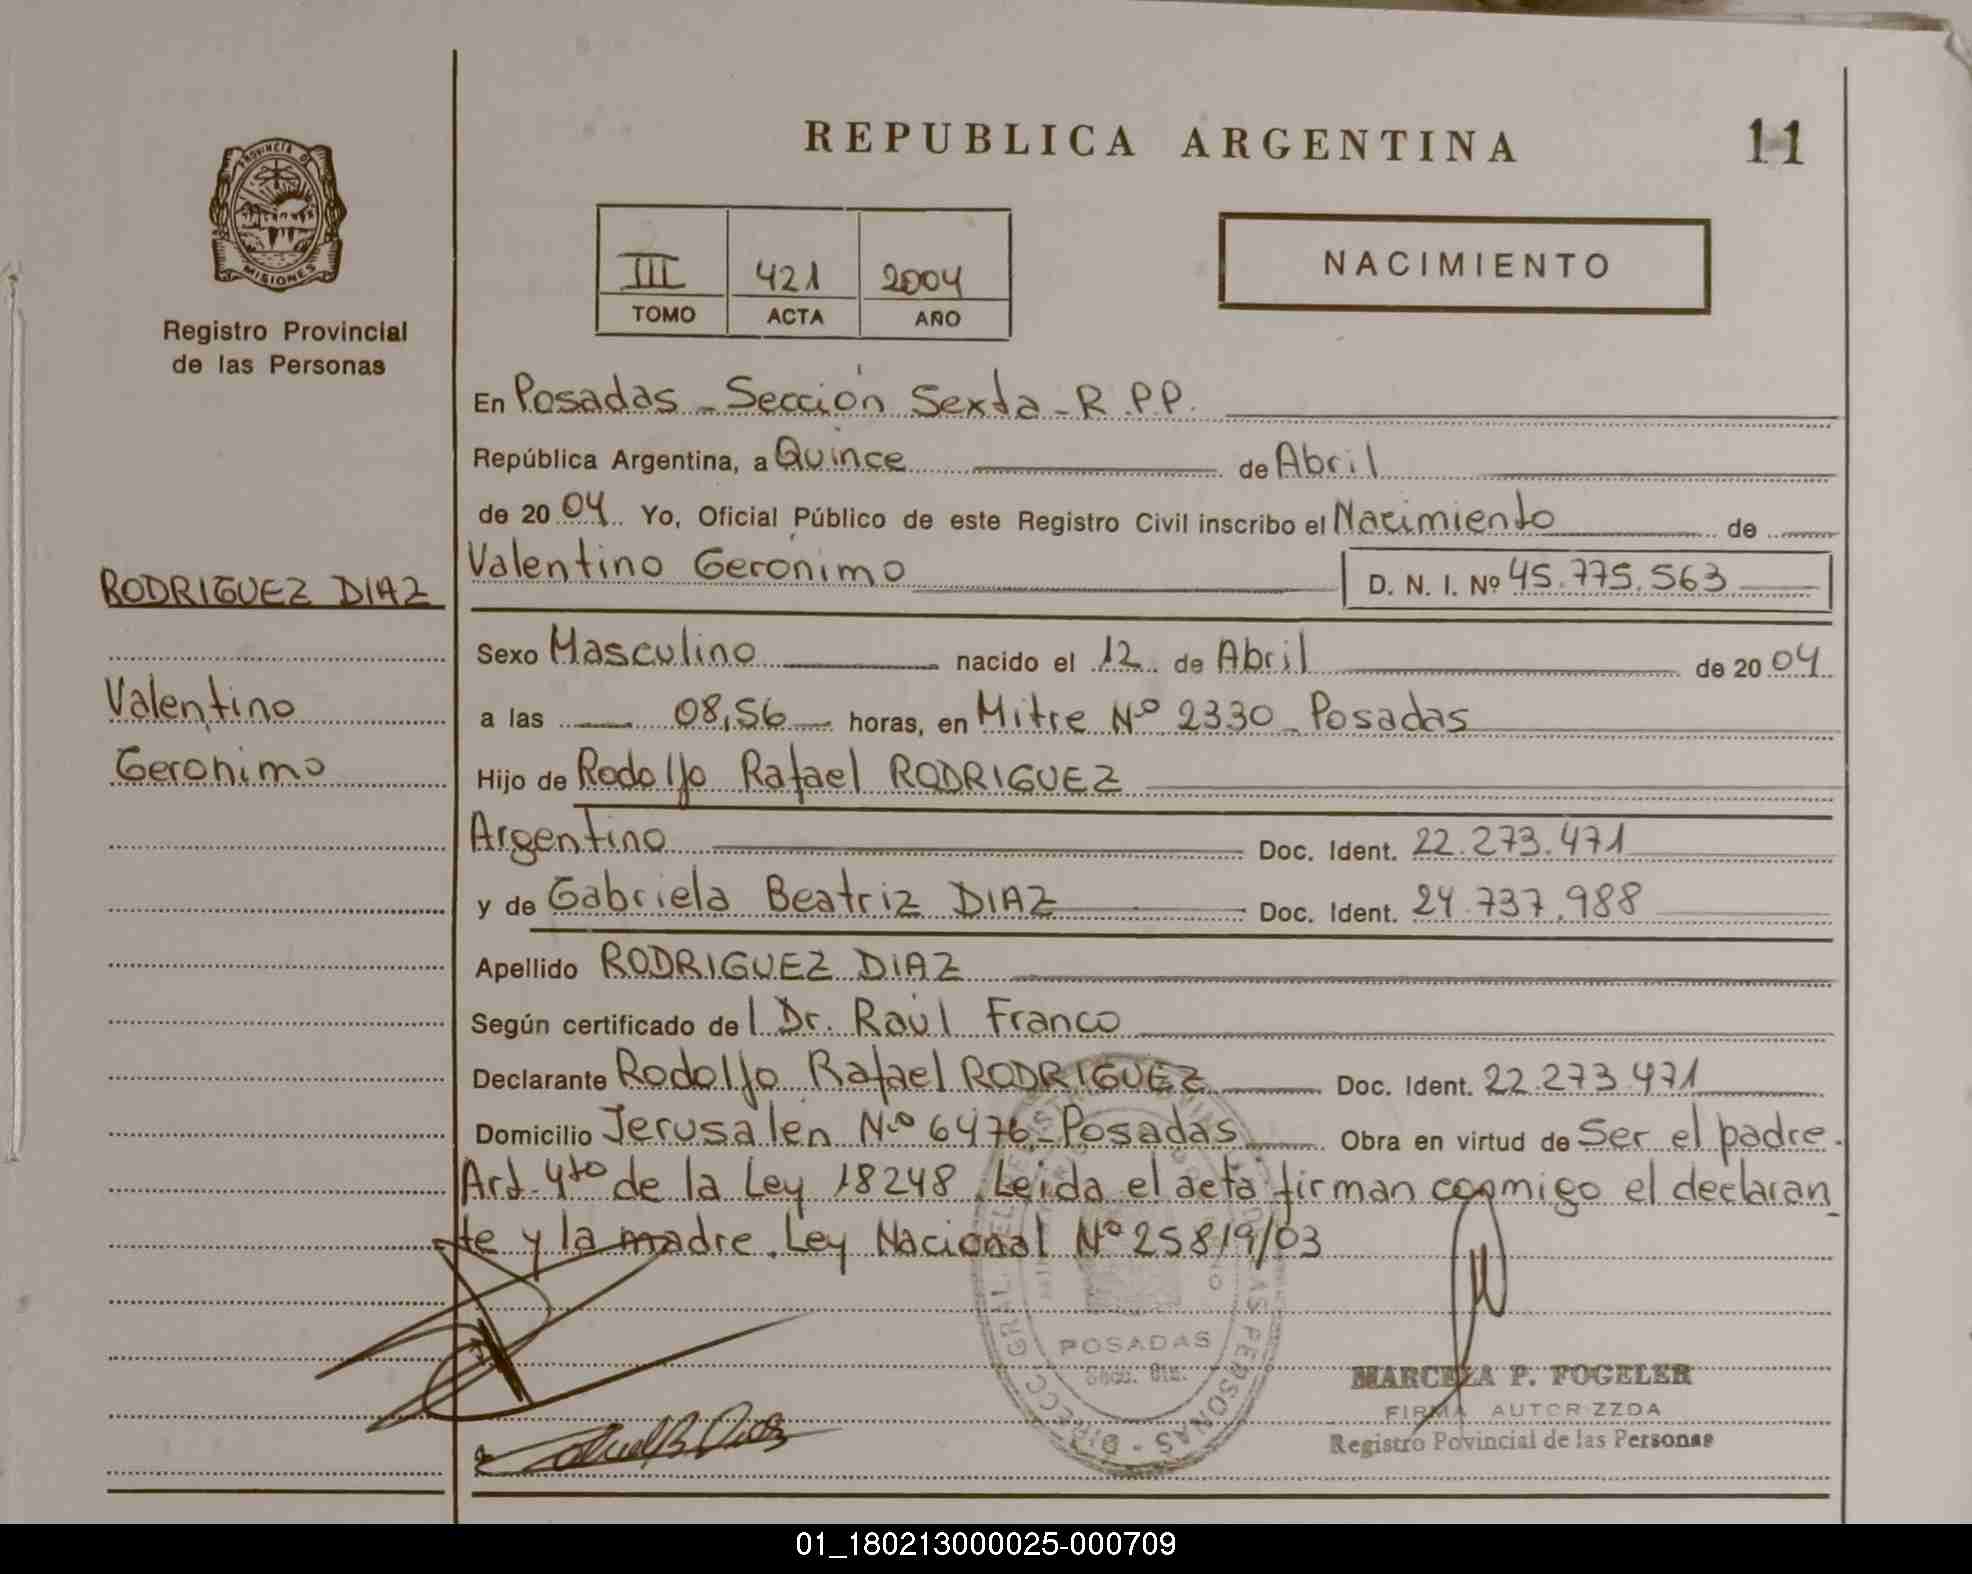 REPUBLICA ARGENTINA
11
PROVINCIA DE
MISIONES
Registro Provincial
de las Personas
III 421 2004
TOMO ACTA AÑO
NACIMIENTO
En Posadas - Sección Sexta - R.P.P.
República Argentina, a Quince de Abril
de 2004 Yo, Oficial Público de este Registro Civil inscribo el Nacimiento de
Valentino Gerónimo D. N. I. Nº 45.775.563
RODRIGUEZ DIAZ
Valentino
Geronimo
Sexo Masculino nacido el 12 de Abril de 2004
a las 08,56 horas, en Mitre Nº 2330 - Posadas
Hijo de Rodolfo Rafael RODRIGUEZ
Argentino Doc. Ident. 22.273.471
y de Gabriela Beatriz DIAZ Doc. Ident. 24.737.988
Apellido RODRIGUEZ DIAZ
Según certificado del Dr. Raúl Franco
Declarante Rodolfo Rafael RODRIGUEZ Doc. Ident. 22.273.471
Domicilio Jerusalén Nº 6476 - Posadas Obra en virtud de Ser el padre.
Art. 4to de la Ley 18248. Leida el acta firman conmigo el declaran
te y la madre. Ley Nacional Nº 25819/03
POSADAS
MARCELA P. FOGELER
FIRMA AUTORIZZDA
Registro Povincial de las Personas
01_180213000025-000709